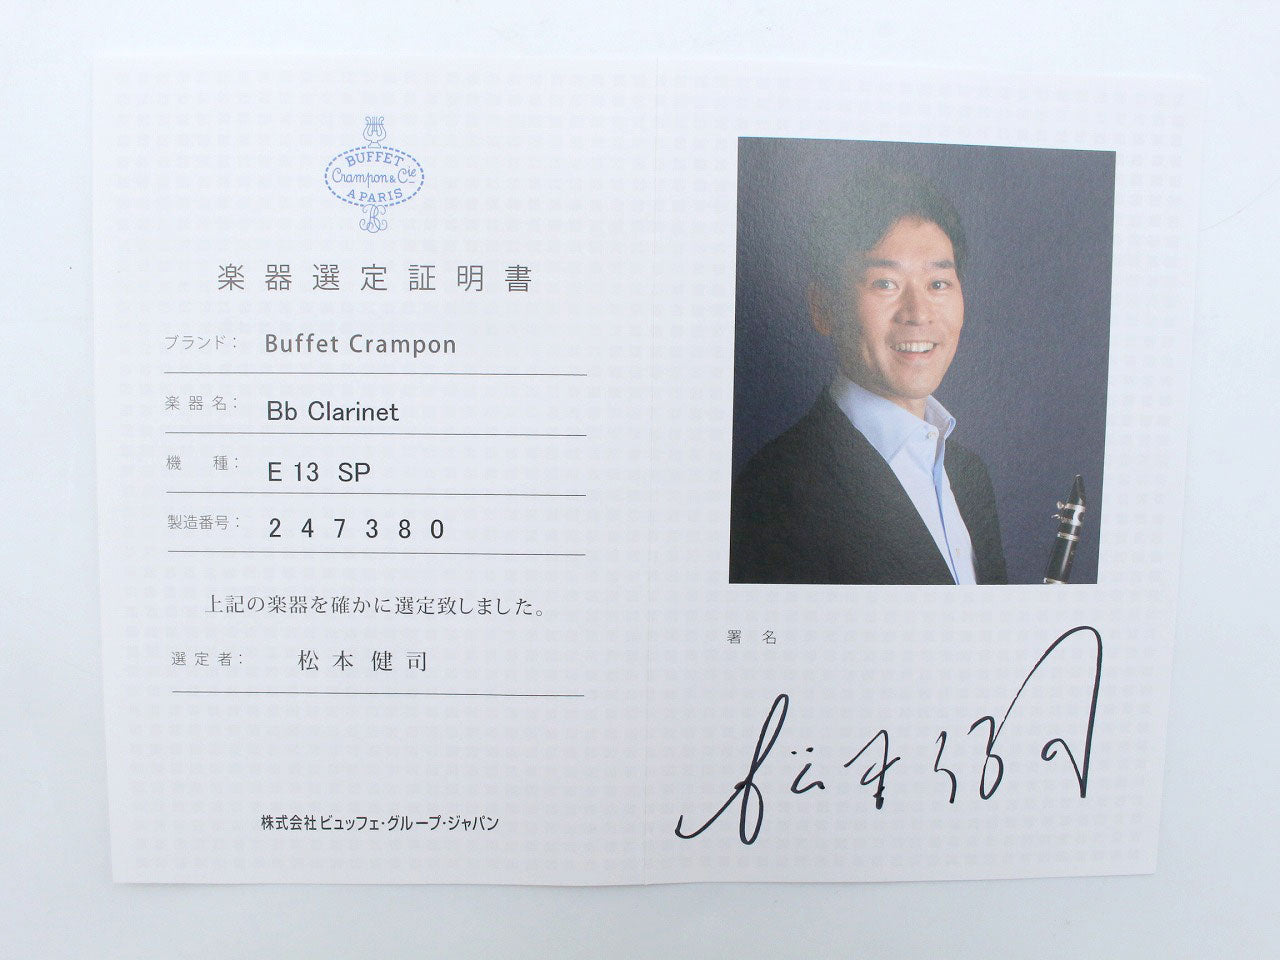 BUFFET
Crampon & Cie
A PARIS
楽器選定証明書
ブランド： Buffet Crampon
楽器名： Bb Clarinet
機種： E 13 SP
製造番号： 247380
上記の楽器を確かに選定致しました。
選定者： 松本健司
株式会社ビュッフェ・グループ・ジャパン
署名
松本健司